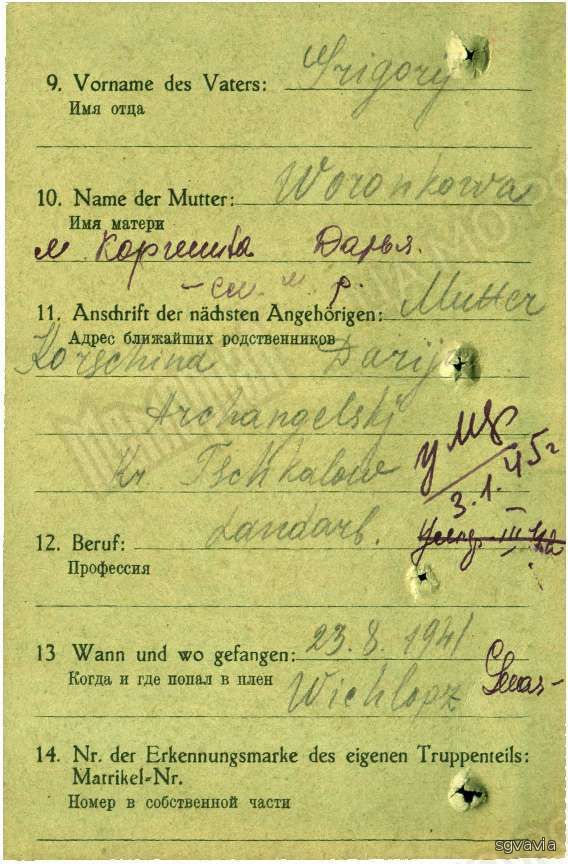 9. Vorname des Vaters: Grigorij
Имя отца
10. Name der Mutter: Woronkowa
Имя матери
м Коргшина Дарья.
- см. м. р.
11. Anschrift der nächsten Angehörigen: Mutter
Адрес ближайших родственников
Korschina Darija
Archangelskj
Kr. Tschkalow
у мер
3.1.45г
12. Beruf: Landarb.
Профессия
13 Wann und wo gefangen: 23.8.1941
Когда и где попал в плен Wichlopz
14. Nr. der Erkennungsmarke des eigenen Truppenteils:
Matrikel-Nr.
Номер в собственной части
sgvavia